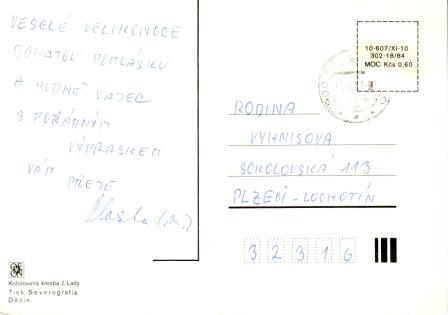 VESELÉ VELIKONOCE
BOHATOU POMLÁSKU
A HODNĚ VAJEC
S POŘÁDNÝM
VÝPRASKEM
VÁM PŘEJE
Vlasta (m.)
10-607/XI-10
302-18/84
MOC Kčs 0,60
RODINA
VYHNISOVA
SOKOLOVSKÁ 113
PLZEŇ - LOCHOTÍN
3 2 3 1 6
Kolorovaná kresba J. Lady
Tisk Severografia
Děčín